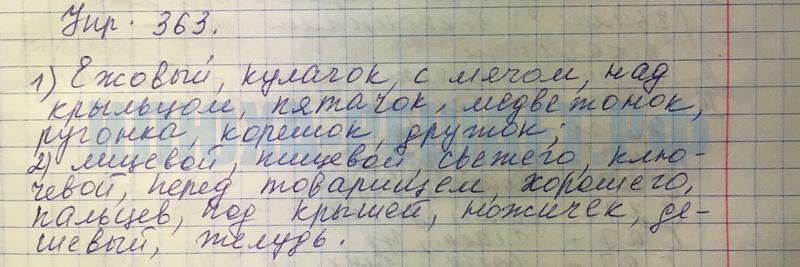 Упр. 363.
1) Ежовый, кулачок, с мячом, над
крыльцом, пятачок, медвежонок,
ругонка, корешок, дружок;
2) лицевой, пищевой свежего, клю-
чевой, перед товарищем, хорошего,
пальцев, под крышей, ножичек, де-
шевый, желудь.